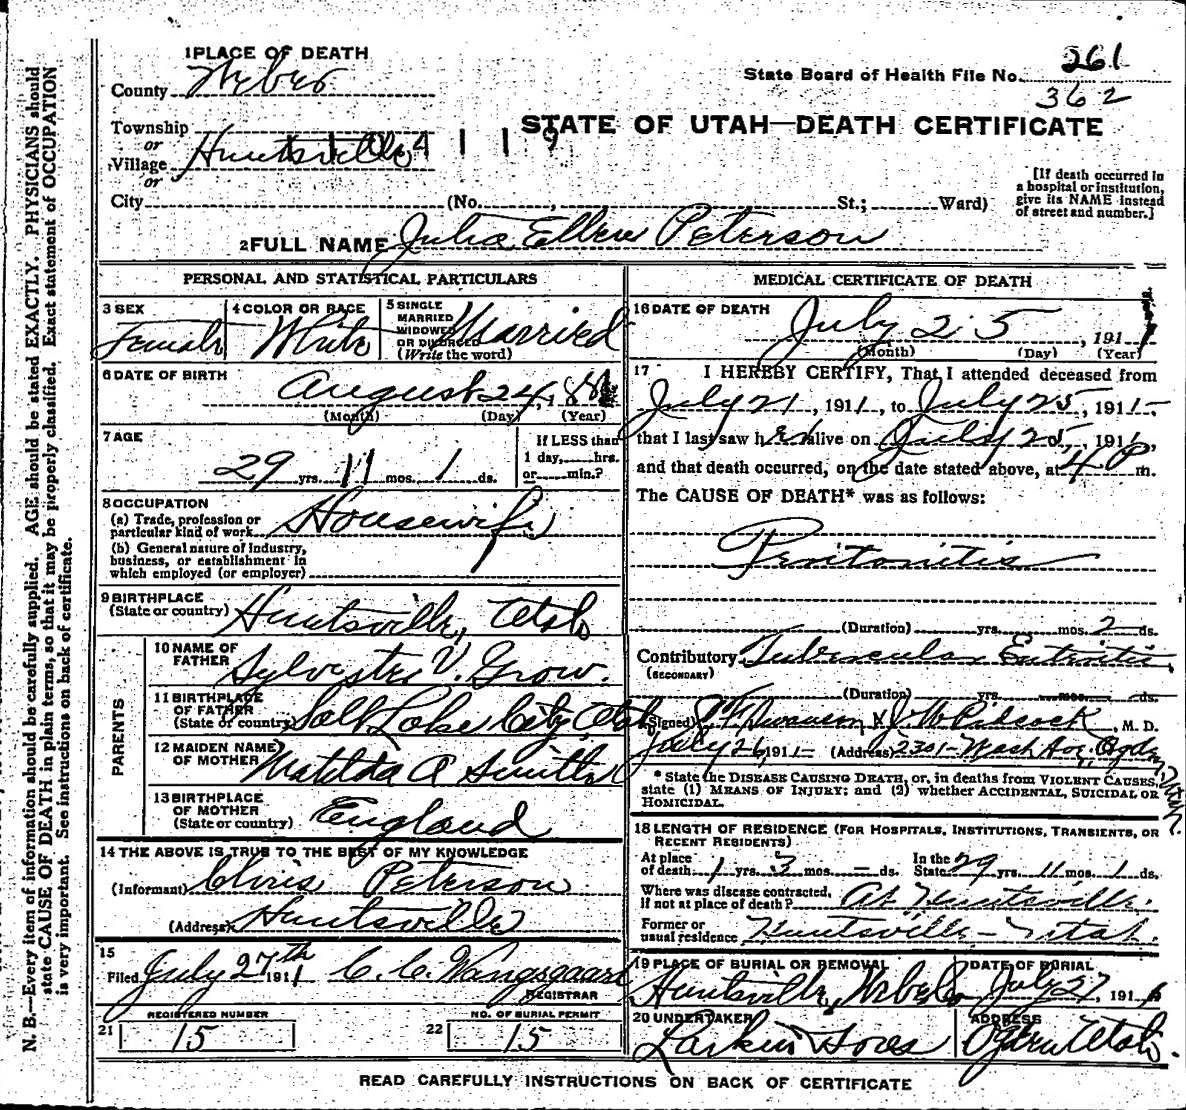 1 PLACE OF DEATH
County Weber
State Board of Health File No. 261
362
Township
or
Village Huntsville
or
STATE OF UTAH—DEATH CERTIFICATE
City (No. , St.; Ward)
[If death occurred in
a hospital or institution,
give its NAME instead
of street and number.]
2 FULL NAME Julia Ellen Peterson
PERSONAL AND STATISTICAL PARTICULARS
3 SEX
Female
4 COLOR OR RACE
White
5 SINGLE
MARRIED
WIDOWED
OR DIVORCED
(Write the word)
Married
6 DATE OF BIRTH
August 24,
(Month) (Day) (Year)
7 AGE
29 yrs. 11 mos. 1 ds.
If LESS than
1 day, hrs.
or min.?
8 OCCUPATION
(a) Trade, profession or
particular kind of work Housewife
(b) General nature of industry,
business, or establishment in
which employed (or employer)
9 BIRTHPLACE
(State or country) Huntsville, Utah
PARENTS
10 NAME OF
FATHER Sylvester V. Grow.
11 BIRTHPLACE
OF FATHER
(State or country) Salt Lake City, Utah
12 MAIDEN NAME
OF MOTHER Matilda A
13 BIRTHPLACE
OF MOTHER
(State or country) England
14 THE ABOVE IS TRUE TO THE BEST OF MY KNOWLEDGE
(Informant) Chris Peterson
(Address) Huntsville
15
Filed July 27th 1911 C. C. Wangsgaard
REGISTRAR
21 REGISTERED NUMBER
15
22 NO. OF BURIAL PERMIT
15
MEDICAL CERTIFICATE OF DEATH
16 DATE OF DEATH
July 25, 1911
(Month) (Day) (Year)
17 I HEREBY CERTIFY, That I attended deceased from
July 21, 1911, to July 25, 1911
that I last saw her alive on July 25, 1911,
and that death occurred, on the date stated above, at 4 P m.
The CAUSE OF DEATH* was as follows:
Peritonitis
(Duration) yrs. mos. 2 ds.
Contributory Tubercular Enteritis
(SECONDARY)
(Duration) yrs. mos. ds.
(Signed) J. W. Pidcock M. D.
July 26, 1911 (Address) 2301 Wash Ave. Ogden, Utah.
* State the DISEASE CAUSING DEATH, or, in deaths from VIOLENT CAUSES,
state (1) MEANS OF INJURY; and (2) whether ACCIDENTAL, SUICIDAL OR
HOMICIDAL.
18 LENGTH OF RESIDENCE (FOR HOSPITALS, INSTITUTIONS, TRANSIENTS, OR
RECENT RESIDENTS)
At place
of death 1 yrs. 3 mos. — ds. In the
State 29 yrs. 11 mos. 1 ds.
Where was disease contracted,
if not at place of death? At Huntsville.
Former or
usual residence Huntsville – Utah.
19 PLACE OF BURIAL OR REMOVAL
Huntsville, Weber Co
DATE OF BURIAL
July 27, 191
20 UNDERTAKER
Larkin Sons
ADDRESS
Ogden Utah.
READ CAREFULLY INSTRUCTIONS ON BACK OF CERTIFICATE
N. B.—Every item of information should be carefully supplied. AGE should be stated EXACTLY. PHYSICIANS should
state CAUSE OF DEATH in plain terms, so that it may be properly classified. Exact statement of OCCUPATION
is very important. See instructions on back of certificate.